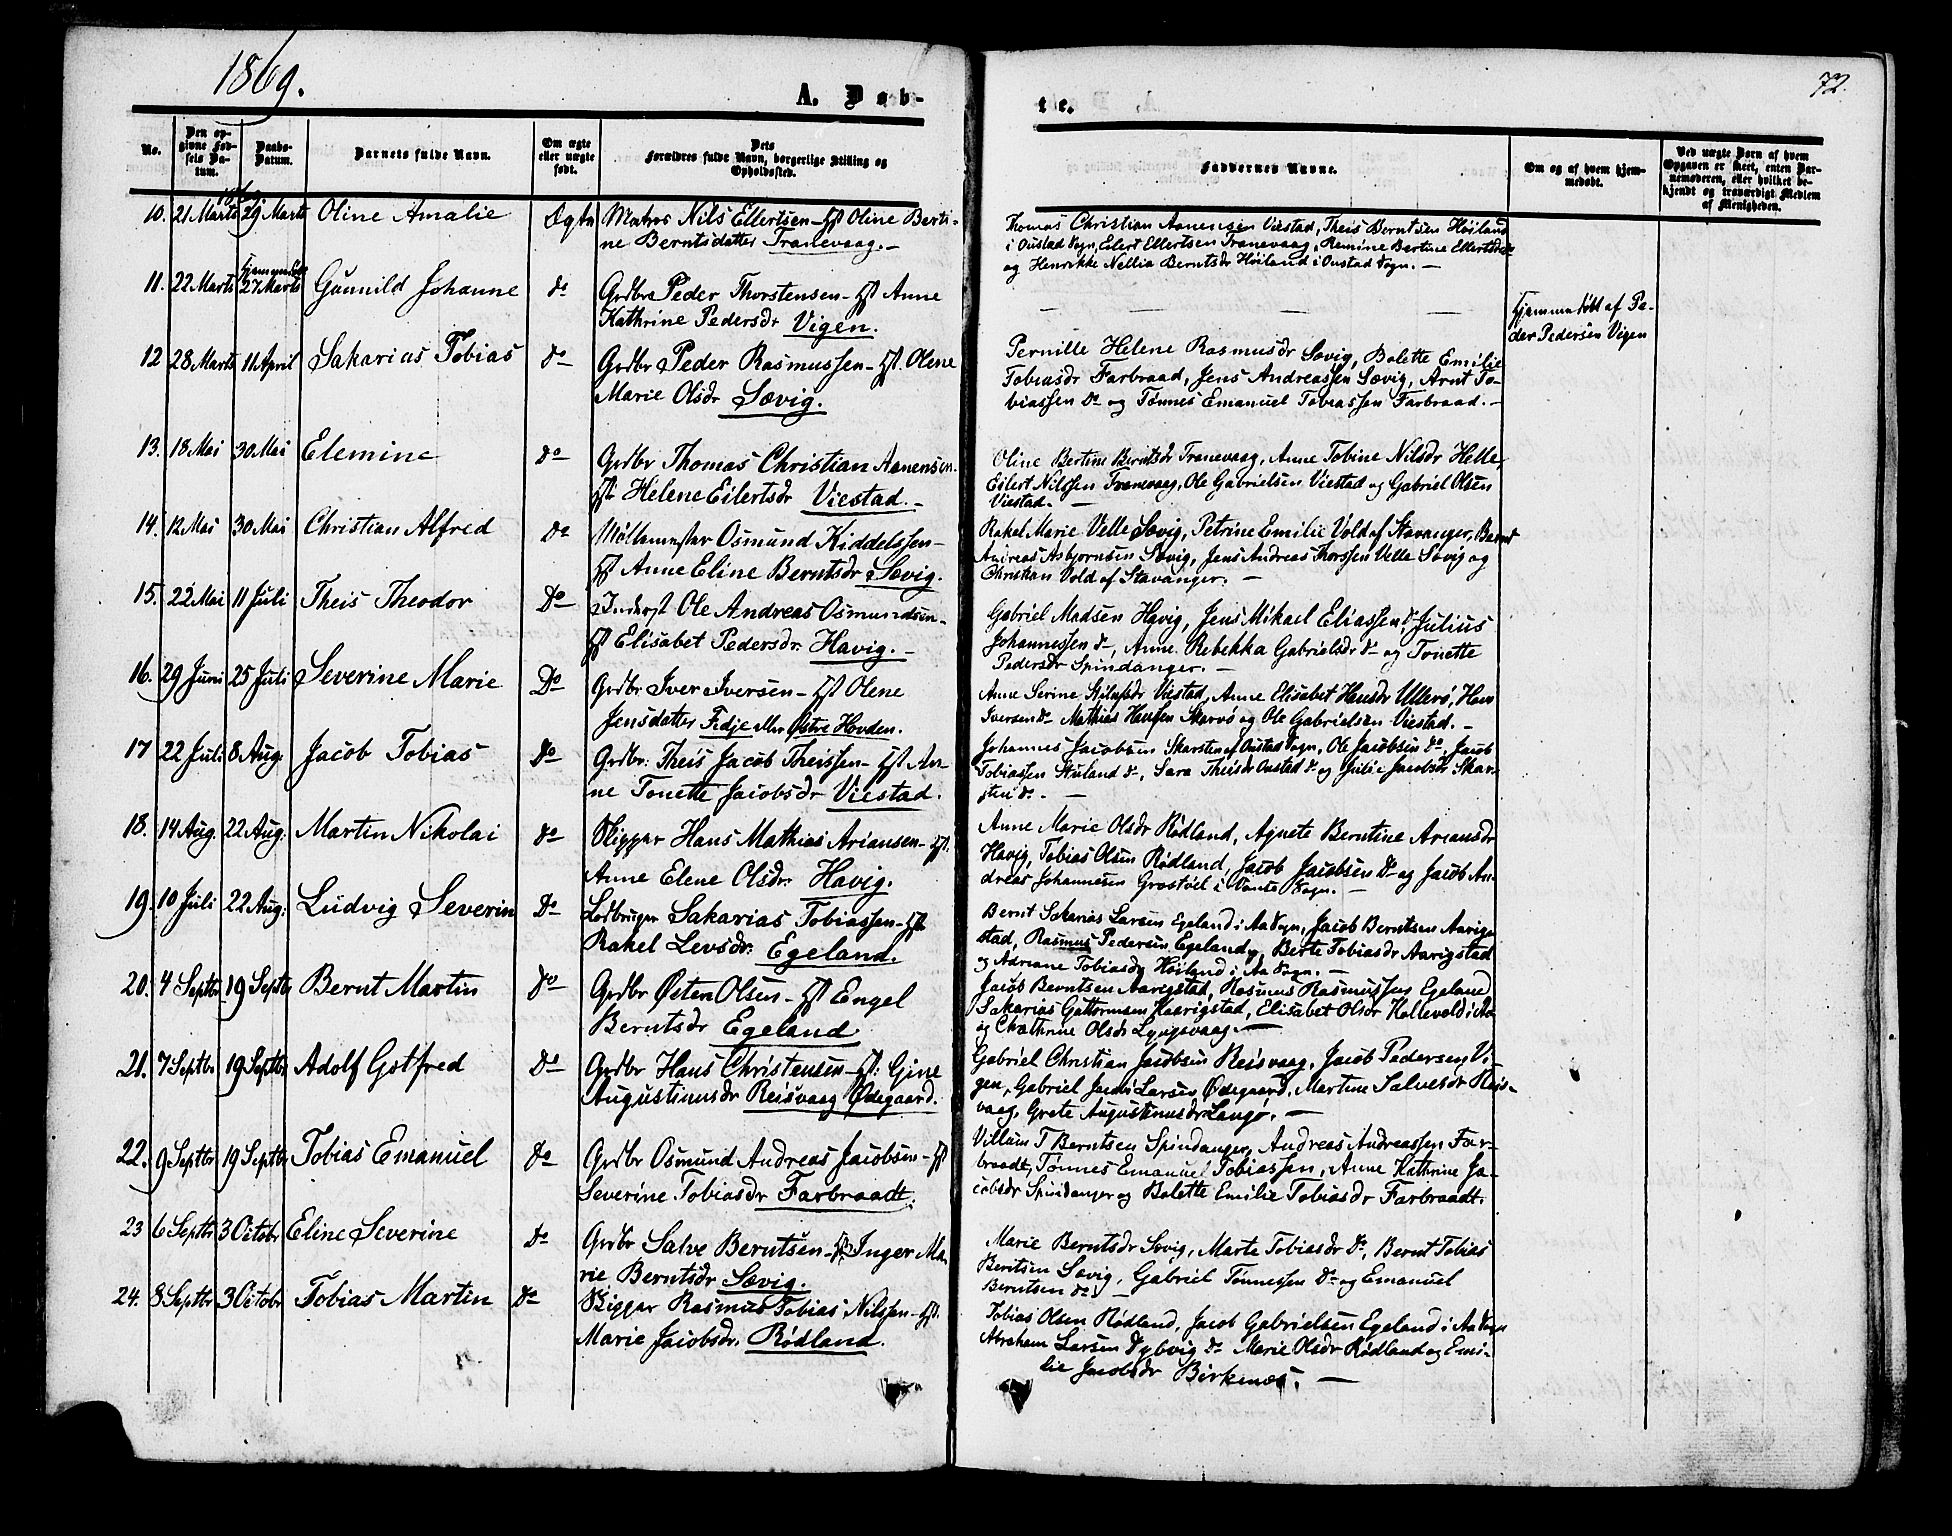 1869.
72.
A. Døb-
te.
No.
Den op-
givne Fød-
sels Da-
tum.
Daabs-
Datum.
Barnets fulde Navn.
Om ægte
eller uægte
født.
Dets
Forældres fulde Navn, borgerlige Stilling og
Opholdssted.
Faddernes Navne.
Om og af hvem hjem-
medøbt.
Ved uægte Børn af hvem
Opgaven er skeet, enten Bar-
nemoderen, eller hvilket be-
kjendt og troværdigt Medlem
af Menigheden.
10. 21 Marts 29 Marts Oline Amalie Ægte Matros Nils Ellertsen - Hst Oline Berti-
ne Berntsdatter Tranevaag. -
Thomas Christian Aanensen Viestad, Theis Berntsen Høiland
i Oustad Sogn, Elert Ellertsen Tranevaag, Remine Bertine Ellertsdr
og Henrikke Nellia Berntsdr Høiland i Oustad Sogn. -
11. 22 Marts hjemmedøbt 27 Marts Gunnild Johanne do Grdbr Peder Thorstensen - Hst Anne
Kathrine Pedersdr Vigen.
Hjemmedøbt af Pe-
der Pedersen Vigen
12 28 Marts 11 April Sakarias Tobias do Grdbr Peder Rasmussen - Hst. Olene
Marie Olsdr Sævig.
Pernille Helene Rasmusdr Sævig, Bolette Emilie
Tobiasdr Farbraad, Jens Andreassen Sævig, Arnt To-
biassen do og Tønnes Emanuel Tobiassen Farbraad. -
13. 18 Mai 30 Mai Elemine do Grdbr Thomas Christian Aanensen
Hst Helene Eilertsdr Viestad. -
Oline Bertine Berntsdr Tranevaag, Anne Tobine Nilsdr Helle,
Eilert Nilssen Tranevaag, Ole Gabrielsen Viestad og Gabriel Olsen
Viestad. -
14. 12 Mai 30 Mai Christian Alfred do Møllemester Osmund Kiddelssen -
Hst Anne Eline Berntsdr Sævig.
Rakel Marie Velle Sævig, Petrine Emilie Vold af Stavanger, Bernt
Andreas Asbjørnsen Sævig, Jens Andreas Thorssen Velle Sævig og
Christian Vold af Stavanger. -
15. 22 Mai 11 Juli Theis Theodor Do Inderst Ole Andreas Osmundsen -
Hst Elisabet Pedersdr. Havig. -
Gabriel Madsen Havig, Jens Mikael Eliassen do, Julius
Johannessen do, Anne Rebekka Gabrielsdr do og Tonette
Pedersdr Spindanger. -
16. 29 Juni 25 Juli Severine Marie Do Grdbr Iver Iversen - Hst Olene
Jensdatter Fedje eller Østre Hovden.
Anne Serine Viestad, Anne Elisabet Hansdr Ullerø, Hans
Iversen do Mathias Hansen og Ole Gabrielsen Viestad. -
17 22 Juli 8 Aug. Jacob Tobias Do Grdbr. Theis Jacob Theissen - Hst An-
ne Tonette Jacobsdr Viestad.
Johannes Jacobsen Skarsten af Oustad Sogn, Ole Jacobsen do, Jacob
Tobiassen Stuland do, Sara Theisdr Oustad do og Julie Jacobsdr Skar-
sten do. -
18. 14 Aug. 22 Aug: Martin Nikolai do Bigger Hans Mathias Ariansen - Hst.
Anne Elene Olsdr: Havig.
Anne Marie Olsdr Rødland, Agnete Berntine Ariansdr
Havig, Tobias Olsen Rødland, Jacob Jacobsen do og Jacob An-
dreas Johannesen Grostøel i Vanse Sogn. -
19. 10 Juli 22 Aug: Ludvig Severin Do Ledbruger Sakarias Tobiassen - Hst
Rakel Levsdr: Egeland.
Bernt Sakarias Larsen Egeland i Aa Sogn, Jacob Berntsen Aarig-
stad, Rasmus Pedersen Egeland, Berte Tobiasdr Aarigstad
og Adriane Tobiasdr Høiland i Aa Sogn. -
20. 4 Septbr 19 Septbr Bernt Martin Do Grdbr Østen Olsen - Hst Engel
Berntsdr Egeland
Jacob Berntsen Aarigstad, Rasmus Rasmussen Egeland
Sakarias Guttormsen Aarigstad, Elisabet Olsdr Kollevold i Aa
og Chathrine Olsdr Lyngsvaag. -
21. 7 Septbr 19 Septbr Adolf Gotfred Do Grdbr Hans Christensen - Hst: Gine
Augustinusdr Reisvaag Ødegaard.
Gabriel Christian Jacobsen Reisvaag, Jacob Pedersen Vi-
gen, Gabriel Jacob Larsen Ødegaard, Martine Salvesdr Reis-
vaag, Grete Augustinusdr Langø. -
22. 9 Septbr 19 Septbr Tobias Emanuel do Grdbr Osmund Andreas Jacobsen - Hst
Severine Tobiasdr Farbraadt.
Villum T Berntsen Spindanger, Andreas Andreassen Far-
braadt, Tønnes Emanuel Tobiassen, Anne Kathrine Ja-
cobsdr Spindanger og Bolette Emilie Tobiasdr Farbraadt.
23 6 Septbr 3 Octobr Eline Severine Do Grdbr Salve Berntsen - Hst Inger Ma-
rie Berntsdr Sævig.
Marie Berntsdr Sævig, Marte Tobiasdr do, Bernt Tobias
Berntsen Sævig, Gabriel Tønnessen do og Emanuel
Berntsen do. -
24. 8 Septbr 3 Octobr Tobias Martin do Bigger Rasmus Tobias Nilssen - Hst.
Marie Jacobsdr. Rødland.
Tobias Olsen Rødland, Jacob Gabrielsen Egeland i Aa Sogn
Abraham Larsen Dybvig do Marie Olsdr Rødland og Emi-
lie Jacobsdr Birkenes. -